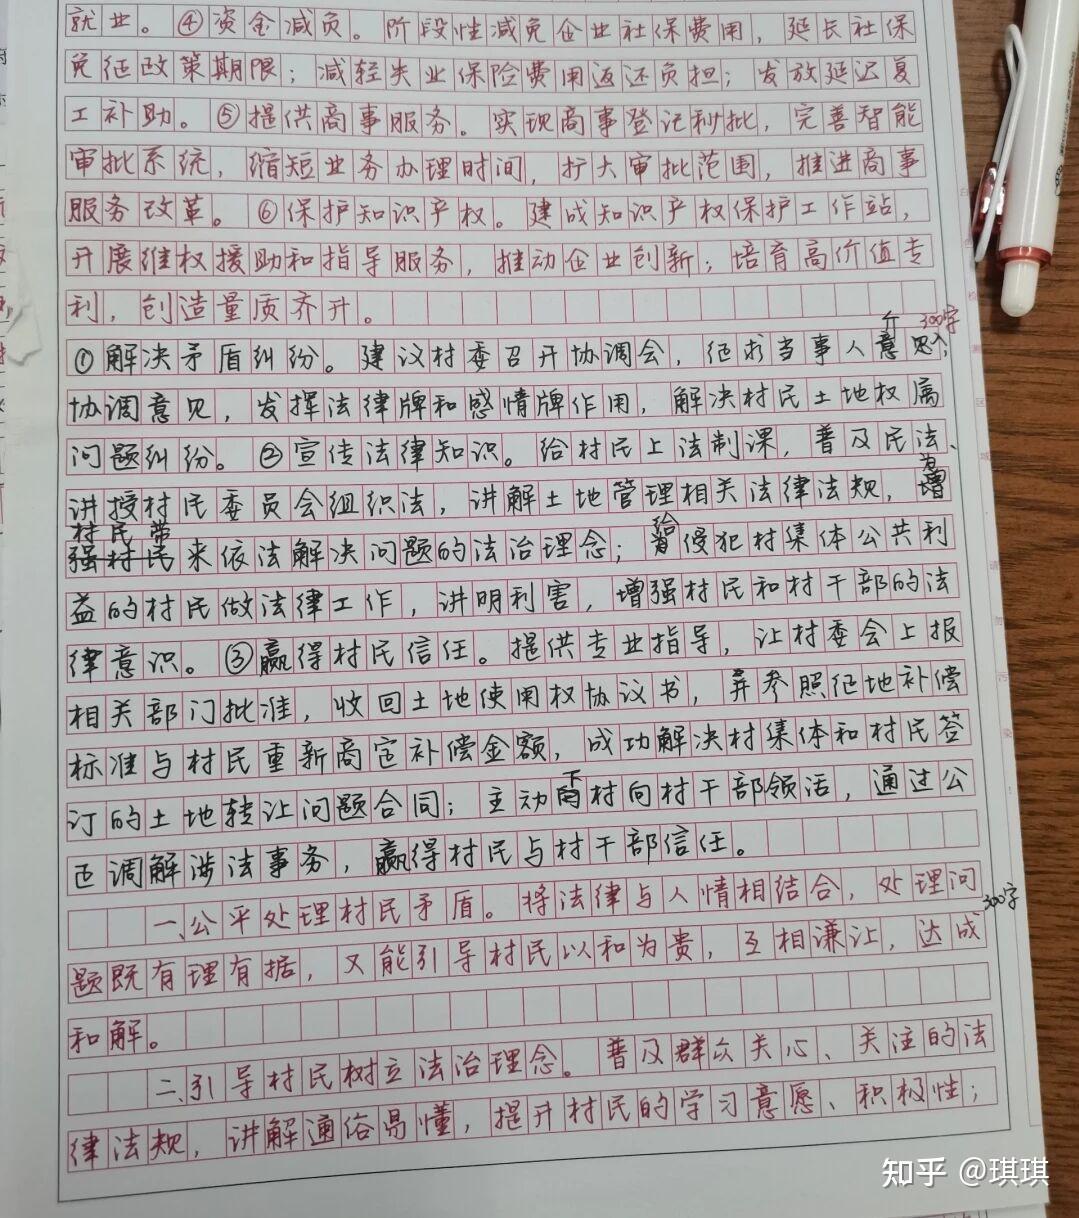 就业。④资金减负。阶段性减免企业社保费用，延长社保
免征政策期限；减轻失业保险费用返还负担；发放延迟复
工补助。⑤提供商事服务。实现商事登记秒批，完善智能
审批系统，缩短业务办理时间，扩大审批范围，推进商事
服务改革。⑥保护知识产权。建成知识产权保护工作站，
开展维权援助和指导服务，推动企业创新；培育高价值专
利，创造量质齐升。
300字
①解决矛盾纠纷。建议村委召开协调会，征求当事人意见，
协调意见，发挥法律牌和感情牌作用，解决村民土地权属
问题纠纷。②宣传法律知识。给村民上法制课，普及民法、
讲授村民委员会组织法，讲解土地管理相关法律法规，为
村民带
强村民来依法解决问题的法治理念；给侵犯村集体公共利
益的村民做法律工作，讲明利害，增强村民和村干部的法
律意识。③赢得村民信任。提供专业指导，让村委会上报
相关部门批准，收回土地使用权协议书，并参照征地补偿
标准与村民重新商定补偿金额，成功解决村集体和村民签
订的土地转让问题合同；主动下村向村干部领活，通过公
正调解涉法事务，赢得村民与村干部信任。
300字
一、公平处理村民矛盾。将法律与人情相结合，处理问
题既有理有据，又能引导村民以和为贵，互相谦让，达成
和解。
二、引导村民树立法治理念。普及群众关心、关注的法
律法规，讲解通俗易懂，提升村民的学习意愿、积极性；
知乎 @琪琪